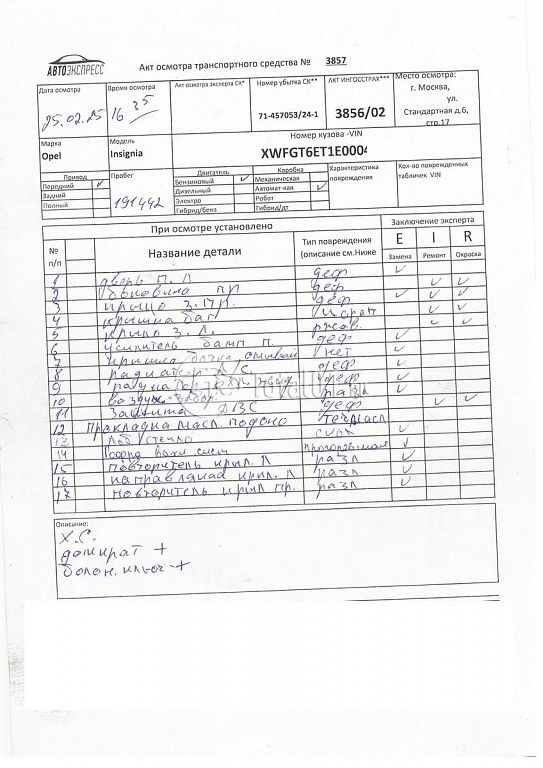 АВТОЭКСПРЕСС
Акт осмотра транспортного средства № 3857
Дата осмотра
25.02.25
Время осмотра
16 35
Акт осмотра эксперта СК*
Номер убытка СК**
71-457053/24-1
АКТ ИНГОССТРАХ***
3856/02
Место осмотра:
г. Москва,
ул.
Стандартная д.6,
стр.17
Марка
Opel
Модель
Insignia
Номер кузова -VIN
XWFGT6ET1E0004
Привод
Передний ✓
Задний
Полный
Пробег
191442
Двигатель
Бензиновый ✓
Дизельный
Электро
Гибрид/бенз
Коробка
Механическая
Автомат-кая ✓
Робот
Гибрид/дт
Характеристика
повреждения
Кол-во поврежденных
табличек VIN
При осмотре установлено
Заключение эксперта
№
п/п
Название детали
Тип повреждения
(описание см.Ниже
E I R
Замена Ремонт Окраска
1 дверь П. Л деф ✓
2 боковина пр деф ✓ ✓
3 крыло З. Пр. деф ✓ ✓ ✓
4 крышка баг ✓ ✓
5 крыло З. Л. ржав. ✓ ✓
6 усилитель бамп п. деф ✓
7 крышка нет ✓
8 радиатор деф ✓
9 деф ✓
10 воздух. забор разл ✓
11 Защита ДВС деф ✓ ✓
12 Пракладка масл подоно
13 Лоб/стекло ✓
14 ✓
15 повторитель крыл. Л разл ✓
16 направляющ крыл. Л разл ✓
17 повторитель крыл пр. разл ✓
Описание:
Х.С.
домкрат +
балон. ключ +